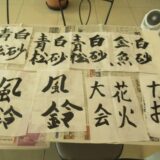 白砂
金魚
白砂
青松
白砂
青松
花火
大会
風鈴
風鈴